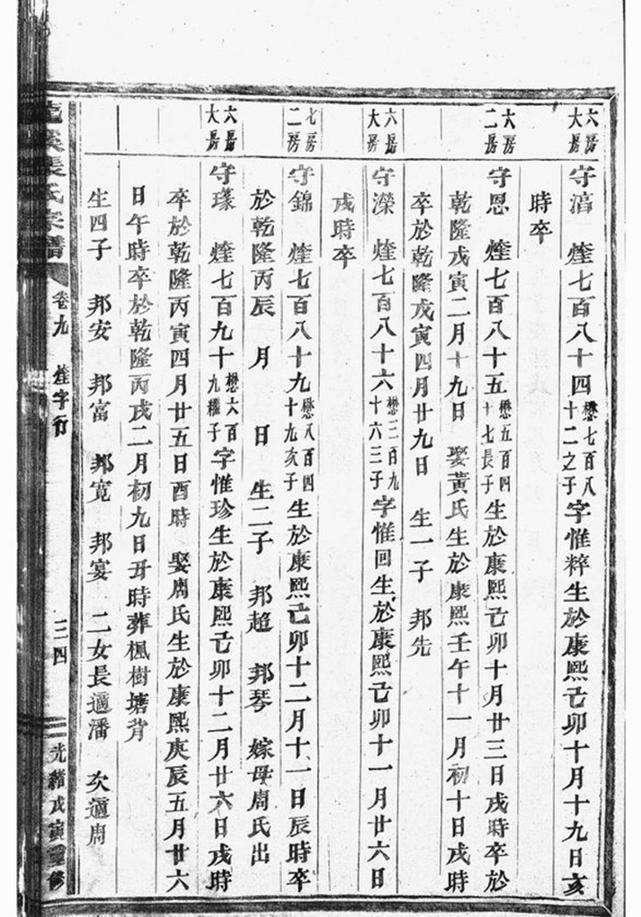 六房
大房
守湻 煃七百八十四 懋七百八
十二之子 字惟粹生於康熙己卯十月十九日亥
時卒
六房
二房
守恩 煃七百八十五 懋五百四
十七長子 生於康熙己卯十月廿三日戌時卒於
乾隆戊寅二月十九日 娶黃氏生於康熙壬午十一月初十日戌時
卒於乾隆戊寅四月廿九日 生一子 邦先
六房
大房
守濚 煃七百八十六 懋三百九
十六三子 字惟回生於康熙己卯十一月廿六日
戌時卒
七房
二房
守錦 煃七百八十九 懋八百四
十九亥子 生於康熙己卯十二月十一日辰時卒
於乾隆丙辰 月 日 生二子 邦超 邦琴 嫁母周氏出
六房
大房
守瑑 煃七百九十 懋六百
九繼子 字惟珍生於康熙己卯十二月廿六日戌時
卒於乾隆丙寅四月廿五日酉時 娶周氏生於康熙庚辰五月廿六
日午時卒於乾隆丙戌二月初九日丑時葬楓樹塘背
生四子 邦安 邦富 邦寬 邦宴 二女長適潘 次適周
張氏宗譜 卷九 煃字行 三四 光緒戊寅重修